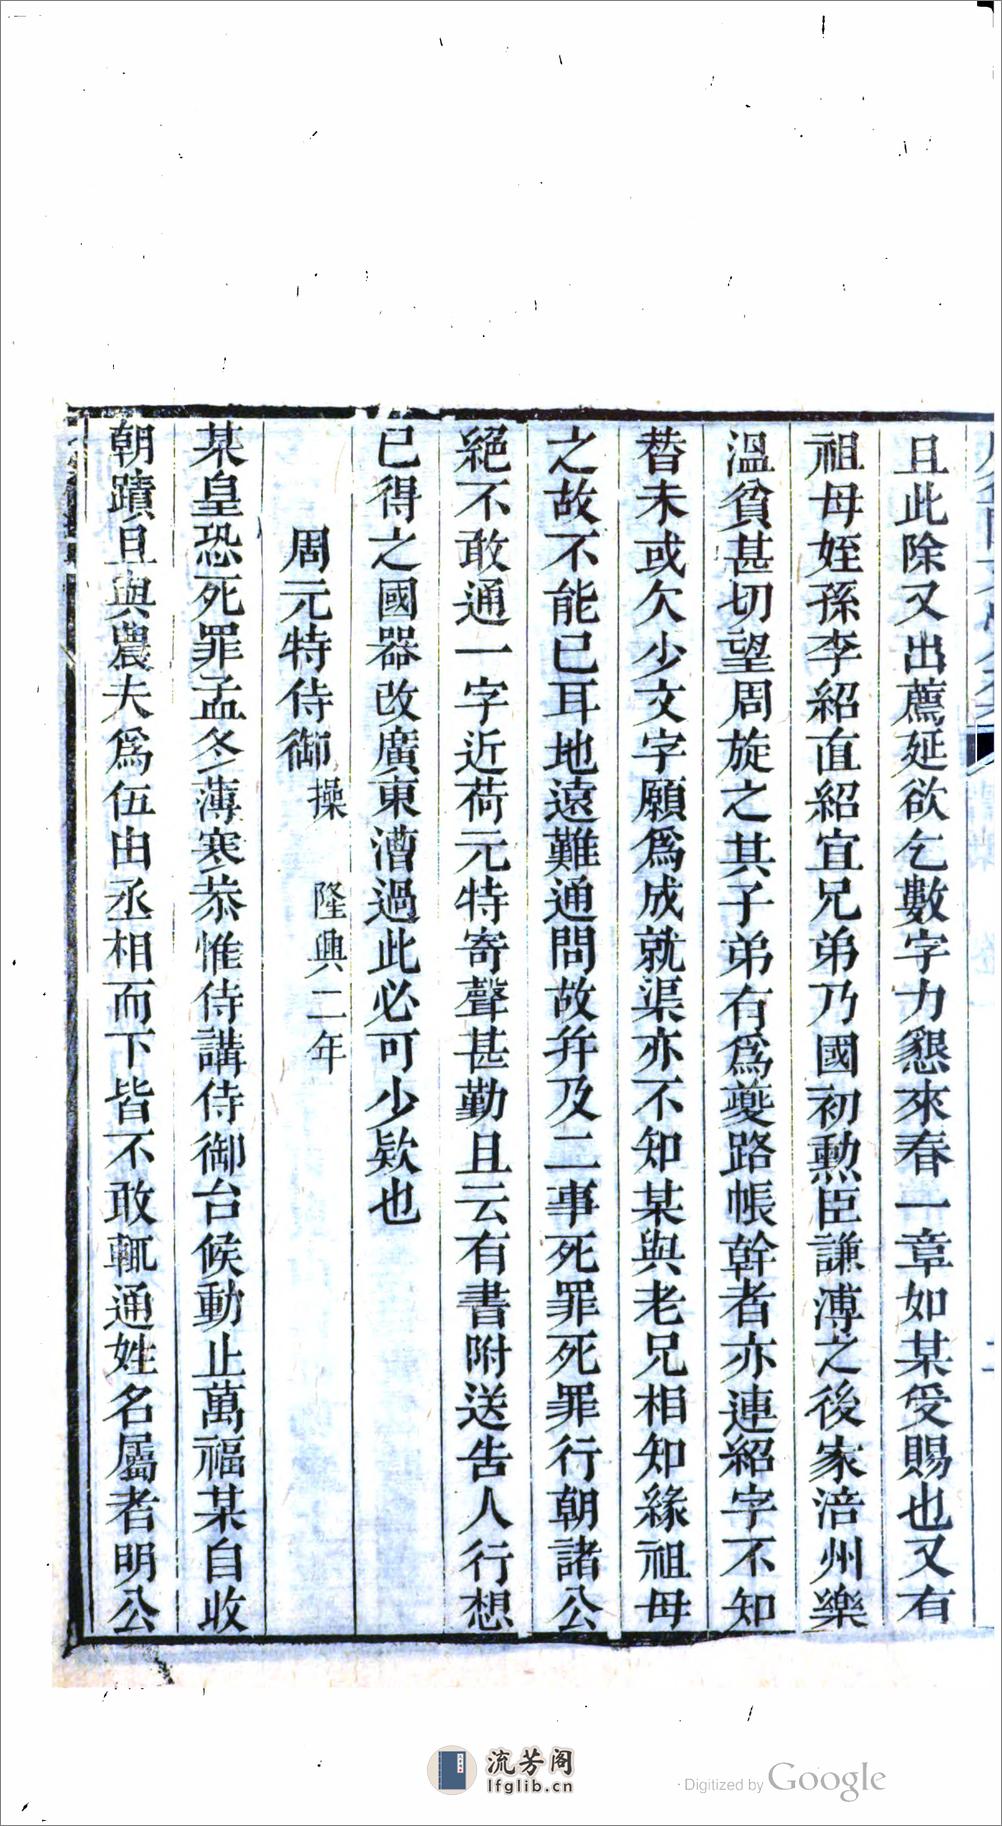 且此除又出薦延欲乞數字力懇來春一章如某受賜也又有
祖母姪孫李紹直紹宜兄弟乃國初勲臣謙溥之後家涪州樂
溫貧甚切望周旋之其子弟有爲夔路帳幹者亦連紹字不知
替未或欠少文字願爲成就渠亦不知某與老兄相知緣祖母
之故不能已耳地遠難通問故幷及二事死罪死罪行朝諸公
絕不敢通一字近荷元特寄聲甚勤且云有書附送告人行想
已得之國器改廣東漕過此必可少欵也
周元特侍御操 隆興二年
某皇恐死罪孟冬薄寒恭惟侍講侍御台候動止萬福某自收
朝蹟且與農夫爲伍由丞相而下皆不敢輒通姓名屬者明公
流芳阁
lfglib.cn
Digitized by Google